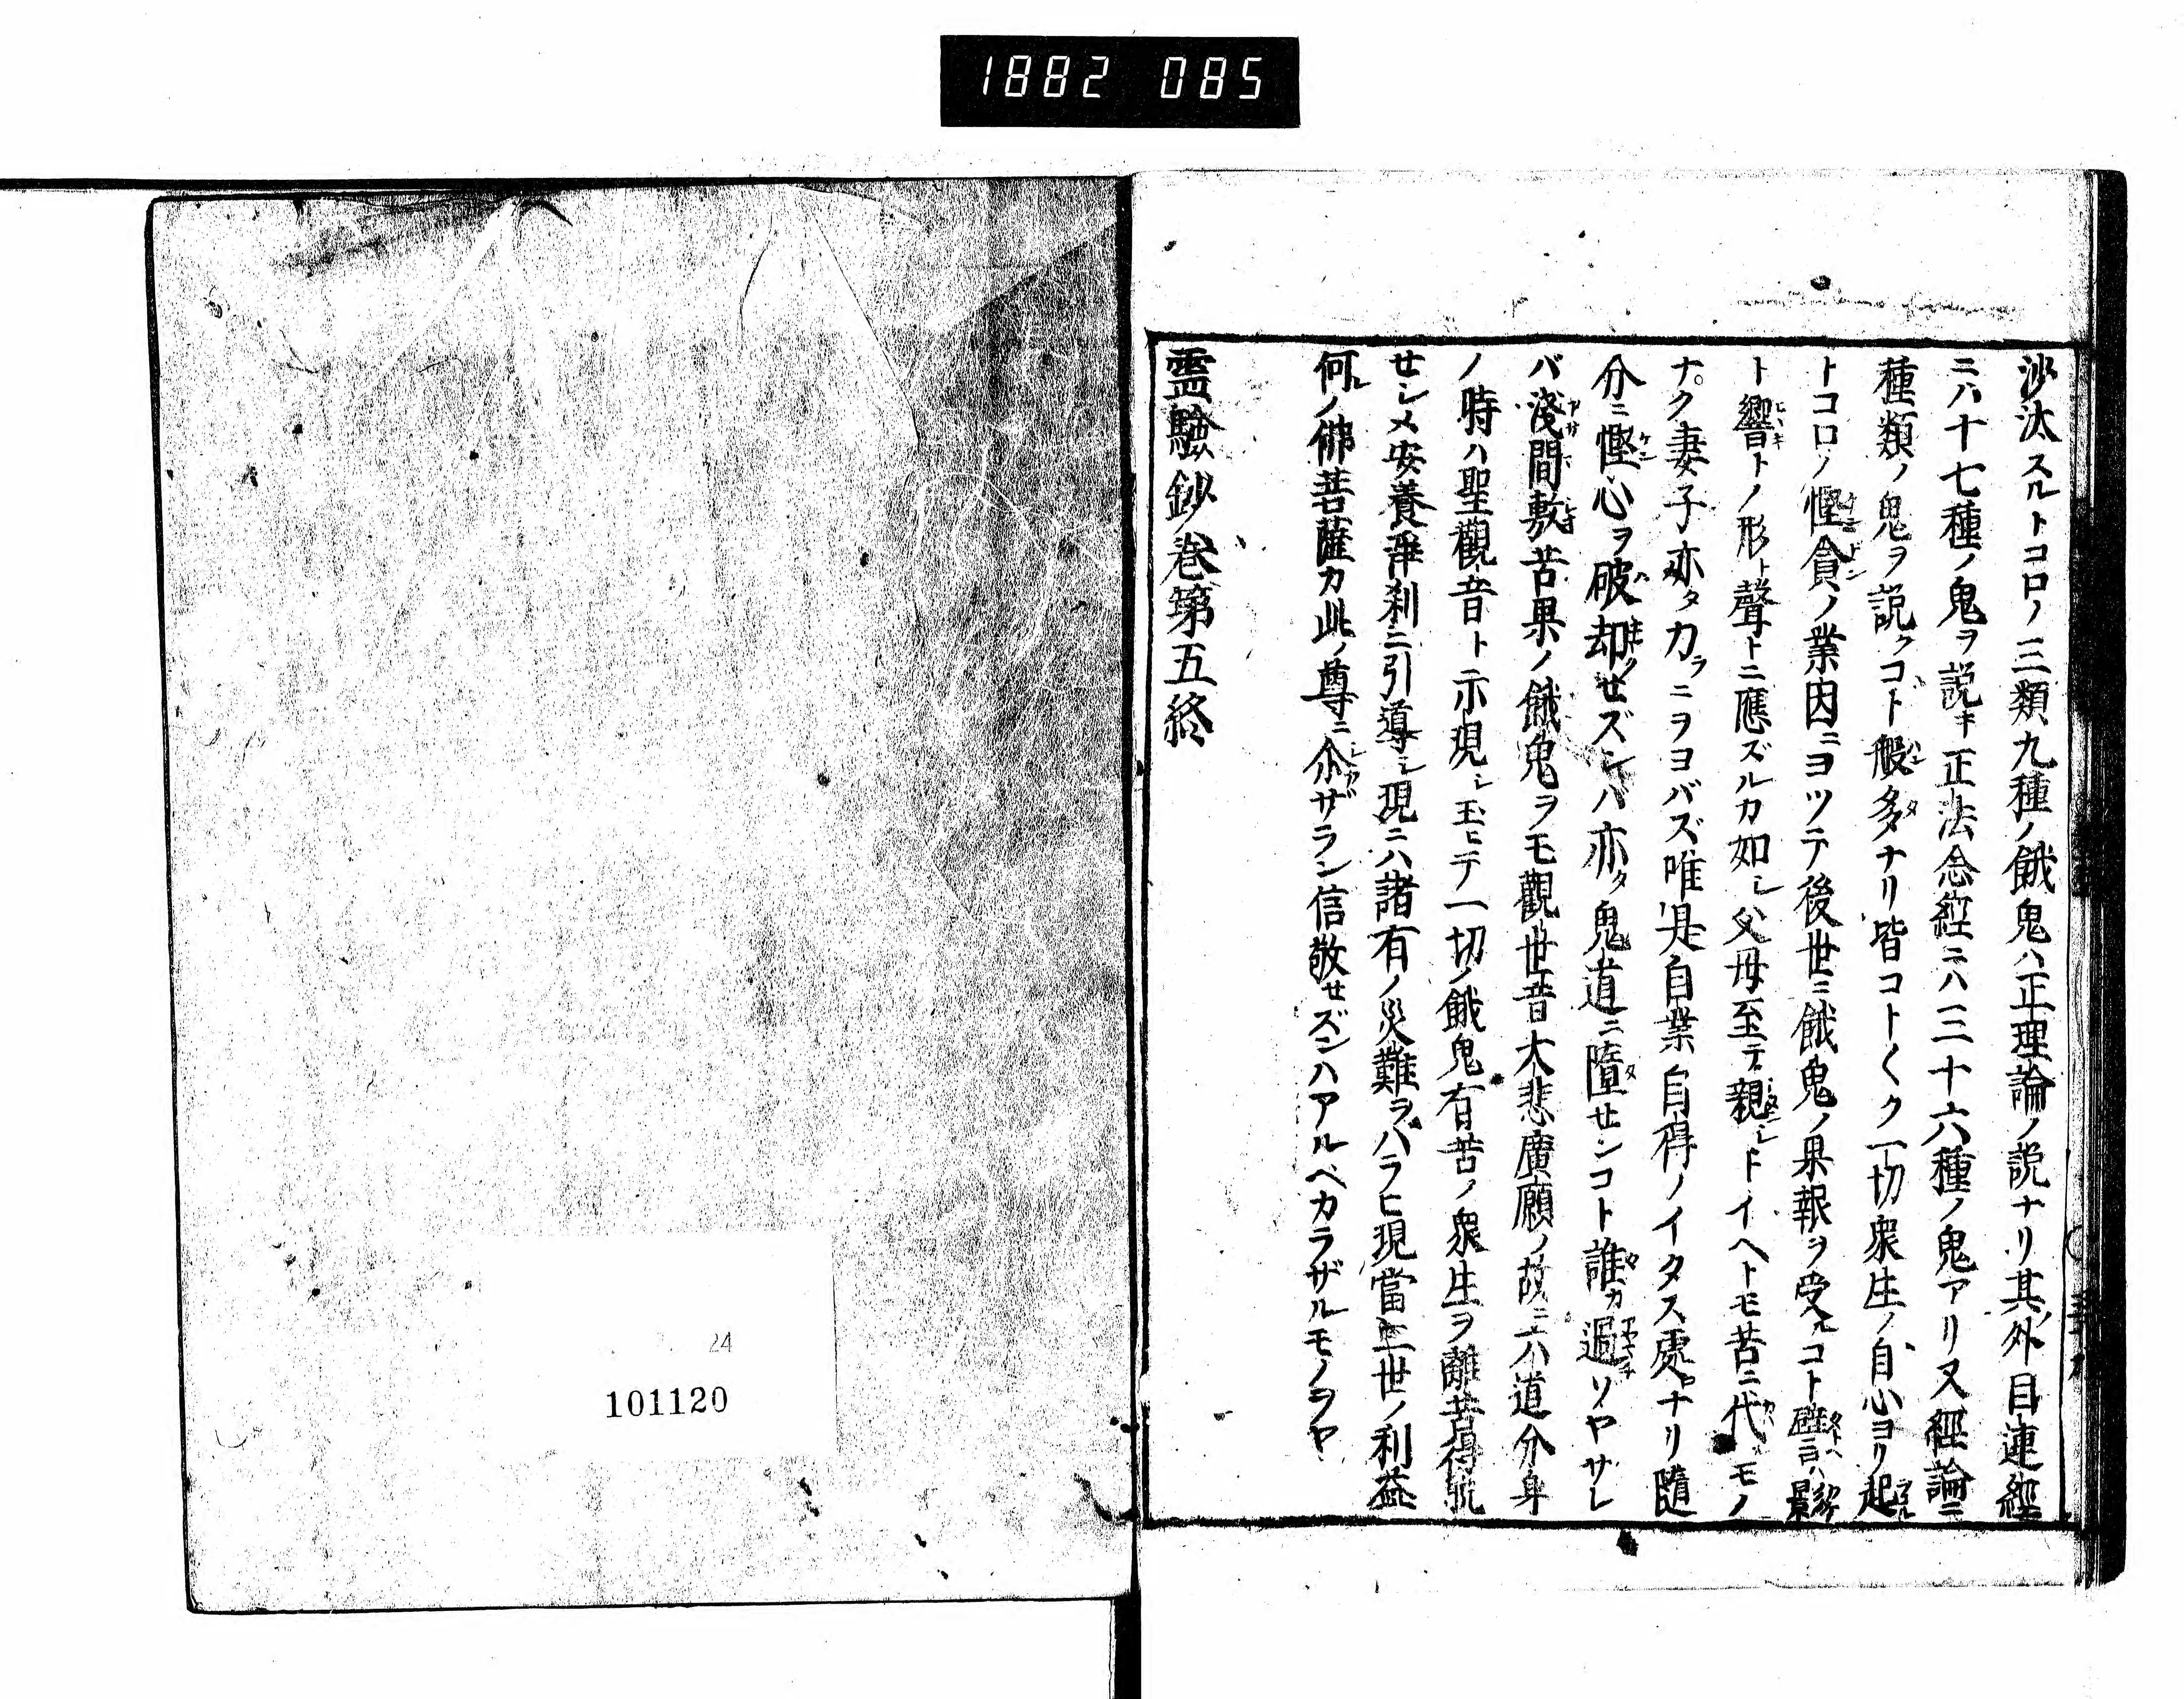 1882 085
沙汰スルトコロノ三類九種ノ餓鬼ハ正理論ノ説ナリ其ノ外目連經
ニハ十七種ノ鬼ヲ説キ正法念經ニハ三十六種ノ鬼アリ又經論ニ
種類ノ鬼ヲ説クコト般多ナリ皆コト〱ク一切衆生ノ自心ヨリ起ル
トコロノ慳貪ノ業因ニヨツテ後世ニ餓鬼ノ果報ヲ受ルコト譬ヘハ影
ト響トノ形ト聲トニ應ズルカ如シ父母至テ親シトイヘトモ苦ニ代ルモノ
ナク妻子亦タカラニヲヨバズ唯是自業自得ノイタス處ナリ隨
分ニ慳心ヲ破却せズンハ亦タ鬼道ニ墮せンコト誰カ過ソヤサレ
バ淺間敷苦果ノ餓鬼ヲモ觀世音大悲廣願ノ故ニ六道分身
ノ時ハ聖觀音ト示現シ玉ヒテ一切ノ餓鬼有苦ノ衆生ヲ離苦得脱
せシメ安養淨刹ニ引導シ現ニハ諸有ノ災難ヲハラヒ現當二世ノ利益
何レノ佛菩薩カ此ノ尊ニ尒ザラン信敬せズンハアルベカラザルモノヲヤ
靈驗鈔巻第五終
24
101120